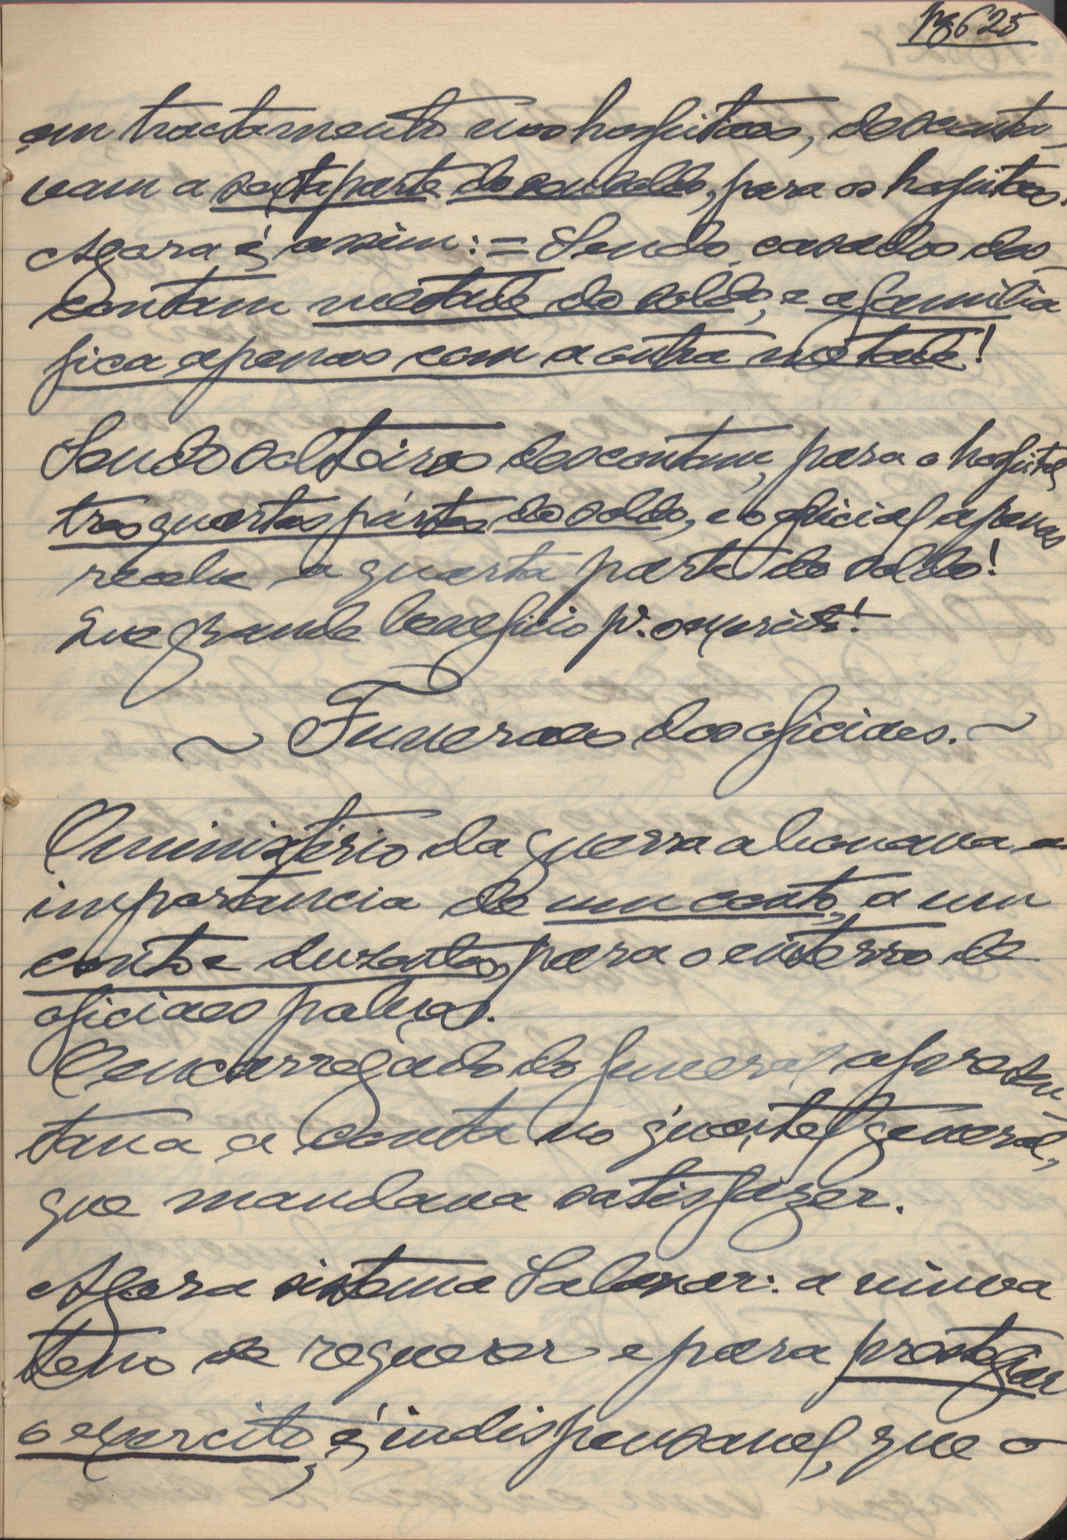 pg 625
em tractamento nos hospitaes, desconta-
vam a sexta parte do seu soldo, para os hospitaes.
Agora é, assim: = Sendo casados des-
contam metade do soldo, e a familia
fica apenas com a outra metade!
Sendo solteiros descontam, para o hospital,
tres quartas pártes do soldo, e o oficial apenas
recebe a quarta parte do soldo!
Que grande beneficio pª. o exercito!
~ Funeraes dos oficiaes. ~
O ministério da guerra abonava a
importancia de um conto, a um
conto e duzentos, para o enterro de
oficiaes pobres.
O encarregado do funeral apresen-
tava a conta no quartel general,
que mandava satisfazer.
Agora sistema Salazar: a viuva
tem de requerer e para prestigiar
o exercito, é indispensavel, que o